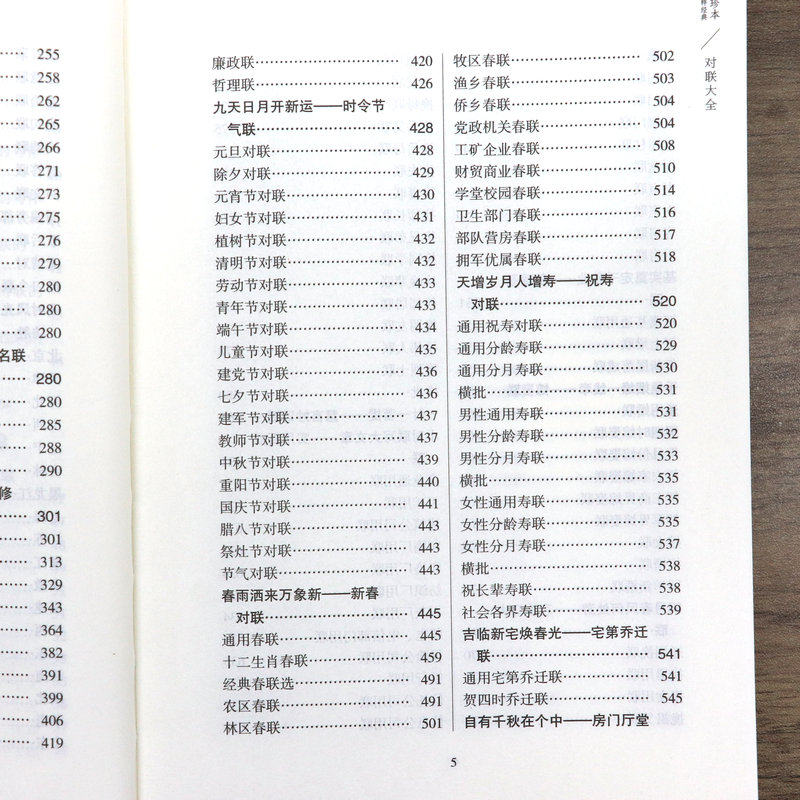 255
258
262
265
266
271
273
275
276
279
280
280
280
名联
280
280
285
288
290
修
301
301
313
329
343
364
382
391
399
406
419
廉政联 420
哲理联 426
九天日月开新运——时令节
气联 428
元旦对联 428
除夕对联 429
元宵节对联 430
妇女节对联 431
植树节对联 432
清明节对联 432
劳动节对联 433
青年节对联 433
端午节对联 434
儿童节对联 435
建党节对联 436
七夕节对联 436
建军节对联 437
教师节对联 437
中秋节对联 439
重阳节对联 440
国庆节对联 441
腊八节对联 443
祭灶节对联 443
节气对联 443
春雨洒来万象新——新春
对联 445
通用春联 445
十二生肖春联 459
经典春联选 491
农区春联 491
林区春联 501
牧区春联 502
渔乡春联 503
侨乡春联 504
党政机关春联 504
工矿企业春联 508
财贸商业春联 510
学堂校园春联 514
卫生部门春联 516
部队营房春联 517
拥军优属春联 518
天增岁月人增寿——祝寿
对联 520
通用祝寿对联 520
通用分龄寿联 529
通用分月寿联 530
横批 531
男性通用寿联 531
男性分龄寿联 532
男性分月寿联 533
横批 535
女性通用寿联 535
女性分龄寿联 535
女性分月寿联 537
横批 538
祝长辈寿联 538
社会各界寿联 539
吉临新宅焕春光——宅第乔迁
联 541
通用宅第乔迁联 541
贺四时乔迁联 545
自有千秋在个中——房门厅堂
5
珍本
释经典
对联大全